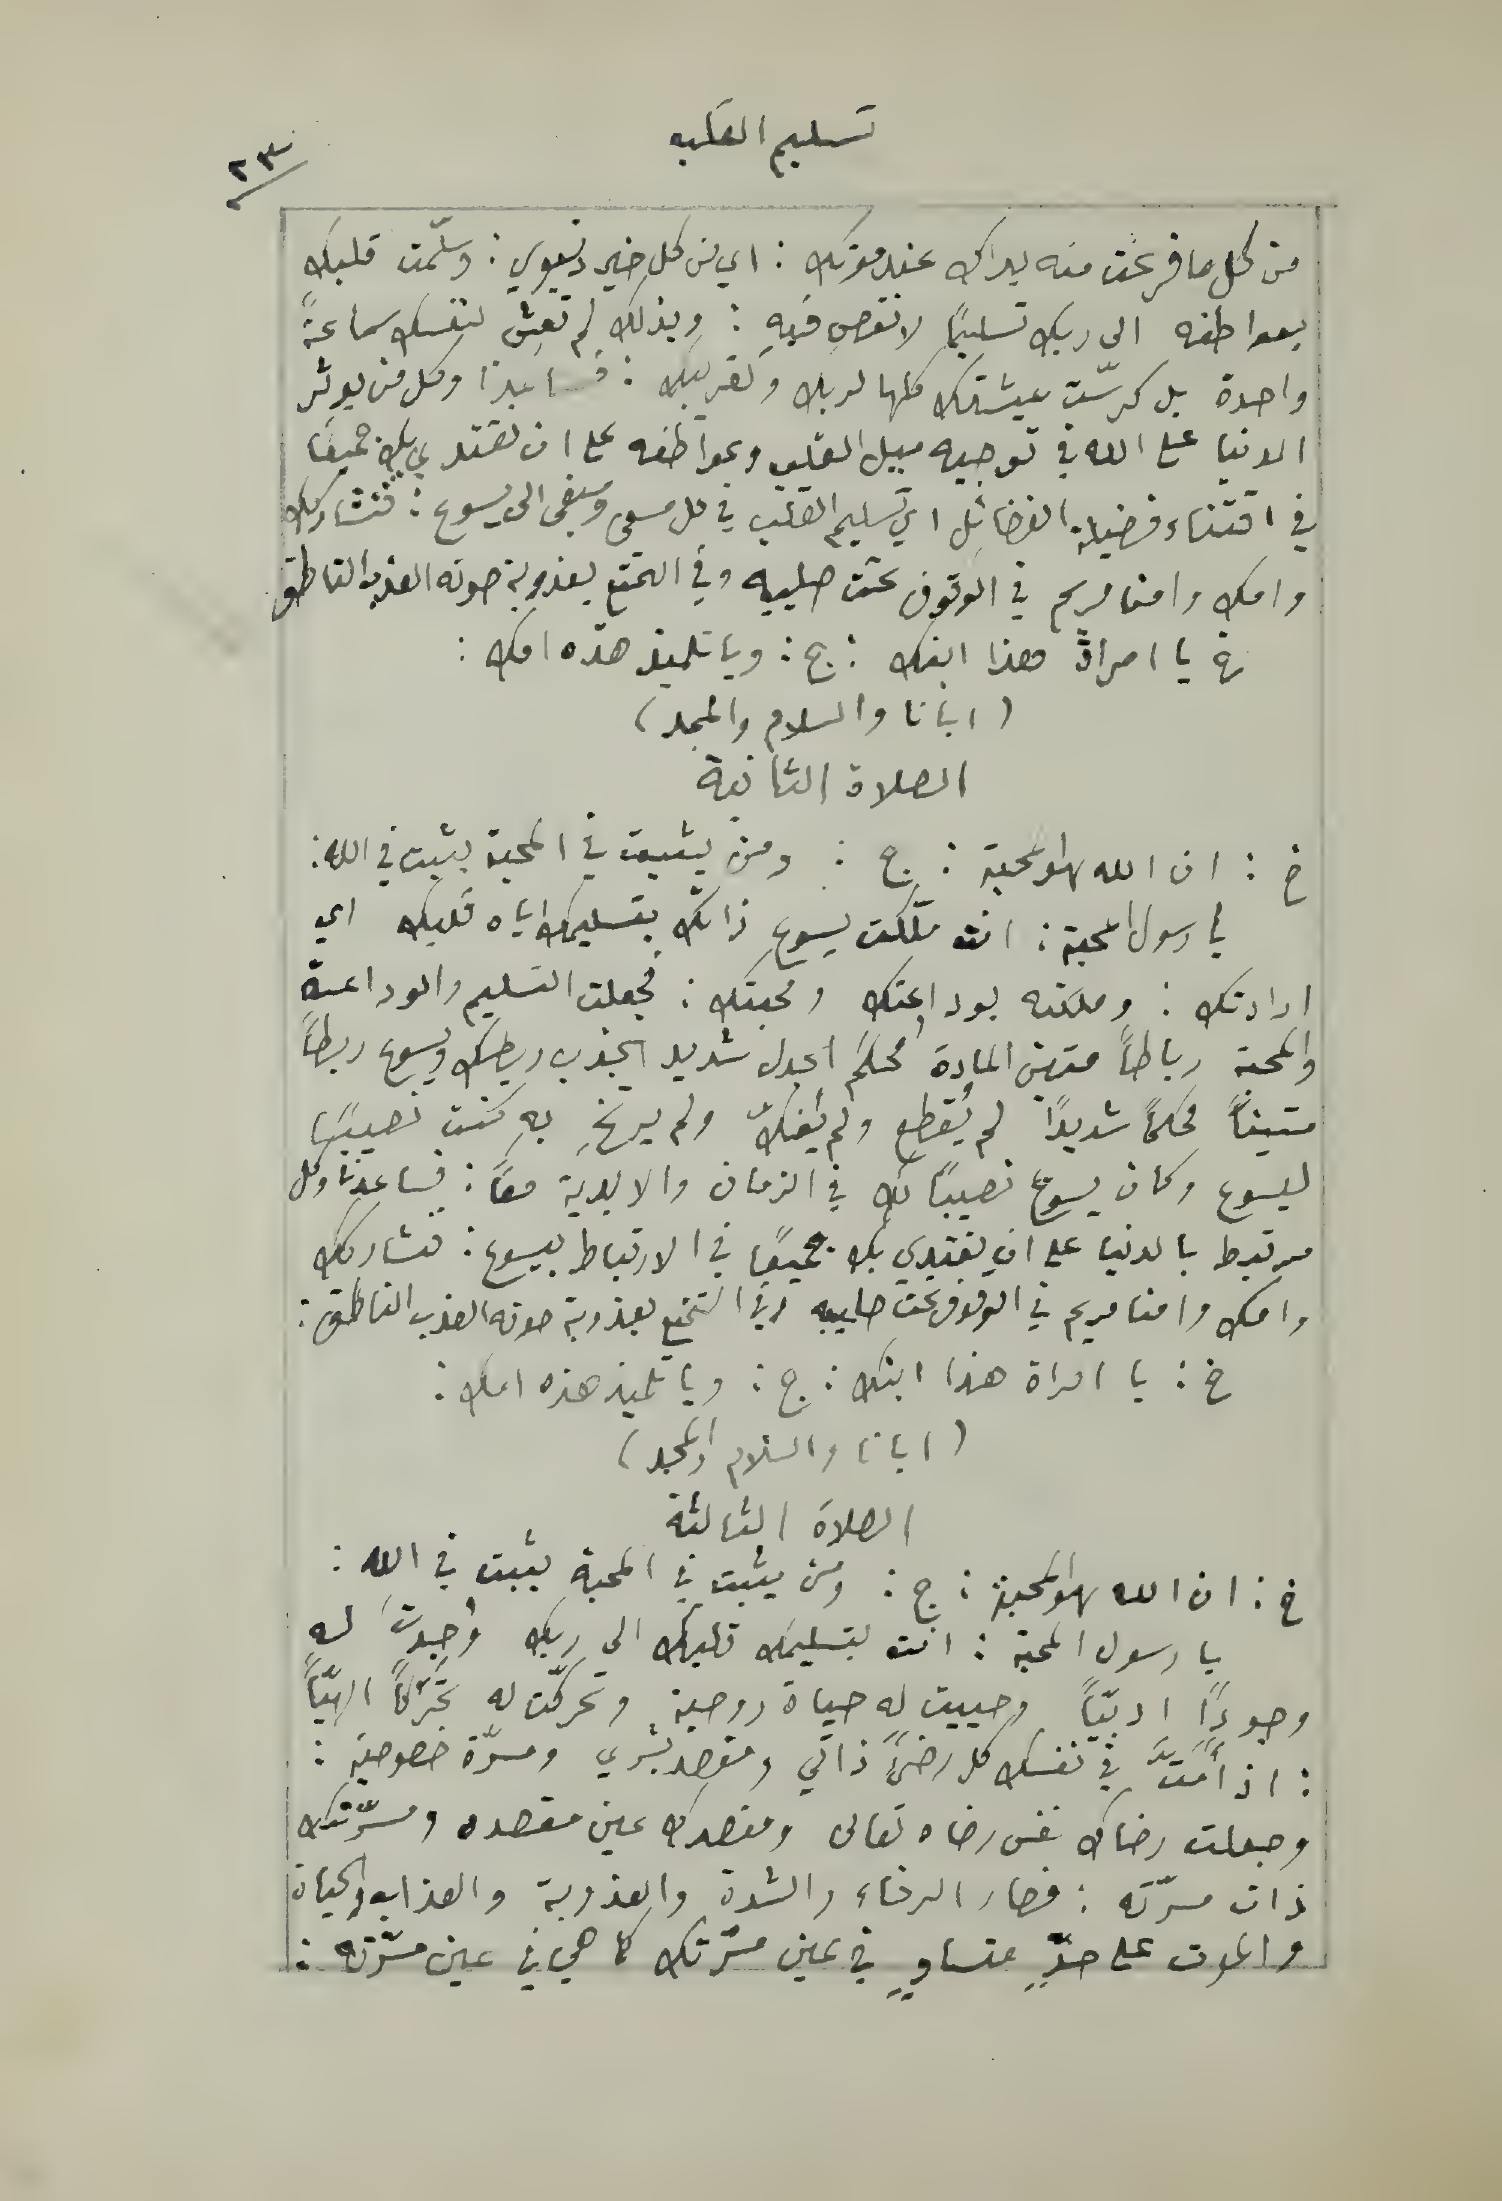 تسليم القلب
٢٣
من كل ما فرغت منه يداك عند موتك : اي من كل خير دنيوي : وسلّمت قلبك
بعواطفه الى ربك تسليمًا لا نقص فيه : وبذلك لم تعش لنفسك ساعةً
واحدة بل كرسّت عيشتك كلها لربك ولقريبك : فساعدنا وكل من يوثر
الدنيا على الله في توجيه ميل القلب وعواطفه على ان نقتدي بك جميعًا
في اقتناء فضيلة الفضائل اي تسليم القلب في كل مسعى ومبغى الى يسوع : فنشاركك
وامك وامنا مريم في الوقوف تحت صليبه وفي التمتع بعذوبة صوته العذب الناطق
خ يا امراة هذا ابنك : ج : ويا تلميذ هذه امك :
( ابانا والسلام والمجد )
الصلاة الثانية
خ : ان الله لهو المحبة : ج : ومن يثبت في المحبة يثبت في الله :
يا رسول المحبة : انت ملّكت يسوع ذاتك بتسليمك اياه قلبك اي
ارادتك : وملكته بوداعتك ومحبتك : فجعلت التسليم والوداعة
والمحبة رباطاً متين المادة محكم الجدل شديد الجذب ربطك ويسوع ربطاً
متيناً محكمًا شديدًا لم يُقطع ولم يُفكّ ولم يرتخِ به كنت نصيبًا
ليسوع وكان يسوع نصيبًا لك في الزمان والابدية معًا : فساعدنا وكل
مرتبط بالدنيا على ان نقتدي بك جميعًا في الارتباط بيسوع : فنشاركك
وامك وامنا مريم في الوقوف تحت صليبه وفي التمتع بعذوبة صوته العذب الناطق :
خ : يا امراة هذا ابنك : ج : ويا تلميذ هذه امك :
( ابانا والسلام والمجد )
الصلاة الثالثة
خ : ان الله لهو المحبة : ج : ومن يثبت في المحبة يثبت في الله :
يا رسول المحبة : انت بتسليمك قلبك الى ربك وُجدتَ له
وجودًا ادبيّاً وحييت له حياة روحية وتحركّت له تحرّكاً الهيّاً
: اذ أمَتَّ في نفسك كل رضىً ذاتي ومقصد بشري ومسرّة خصوصية :
وجعلت رضاك نفس رضاه تعالى ومقصدك عين مقصده ومسرّتك
ذات مسرّته : فصار الرخاء والشدة والعذوبة والعذاب والحياة
والموت على حدٍّ متساوٍ في عين مسرّتك كما هي في عين مسرّته :